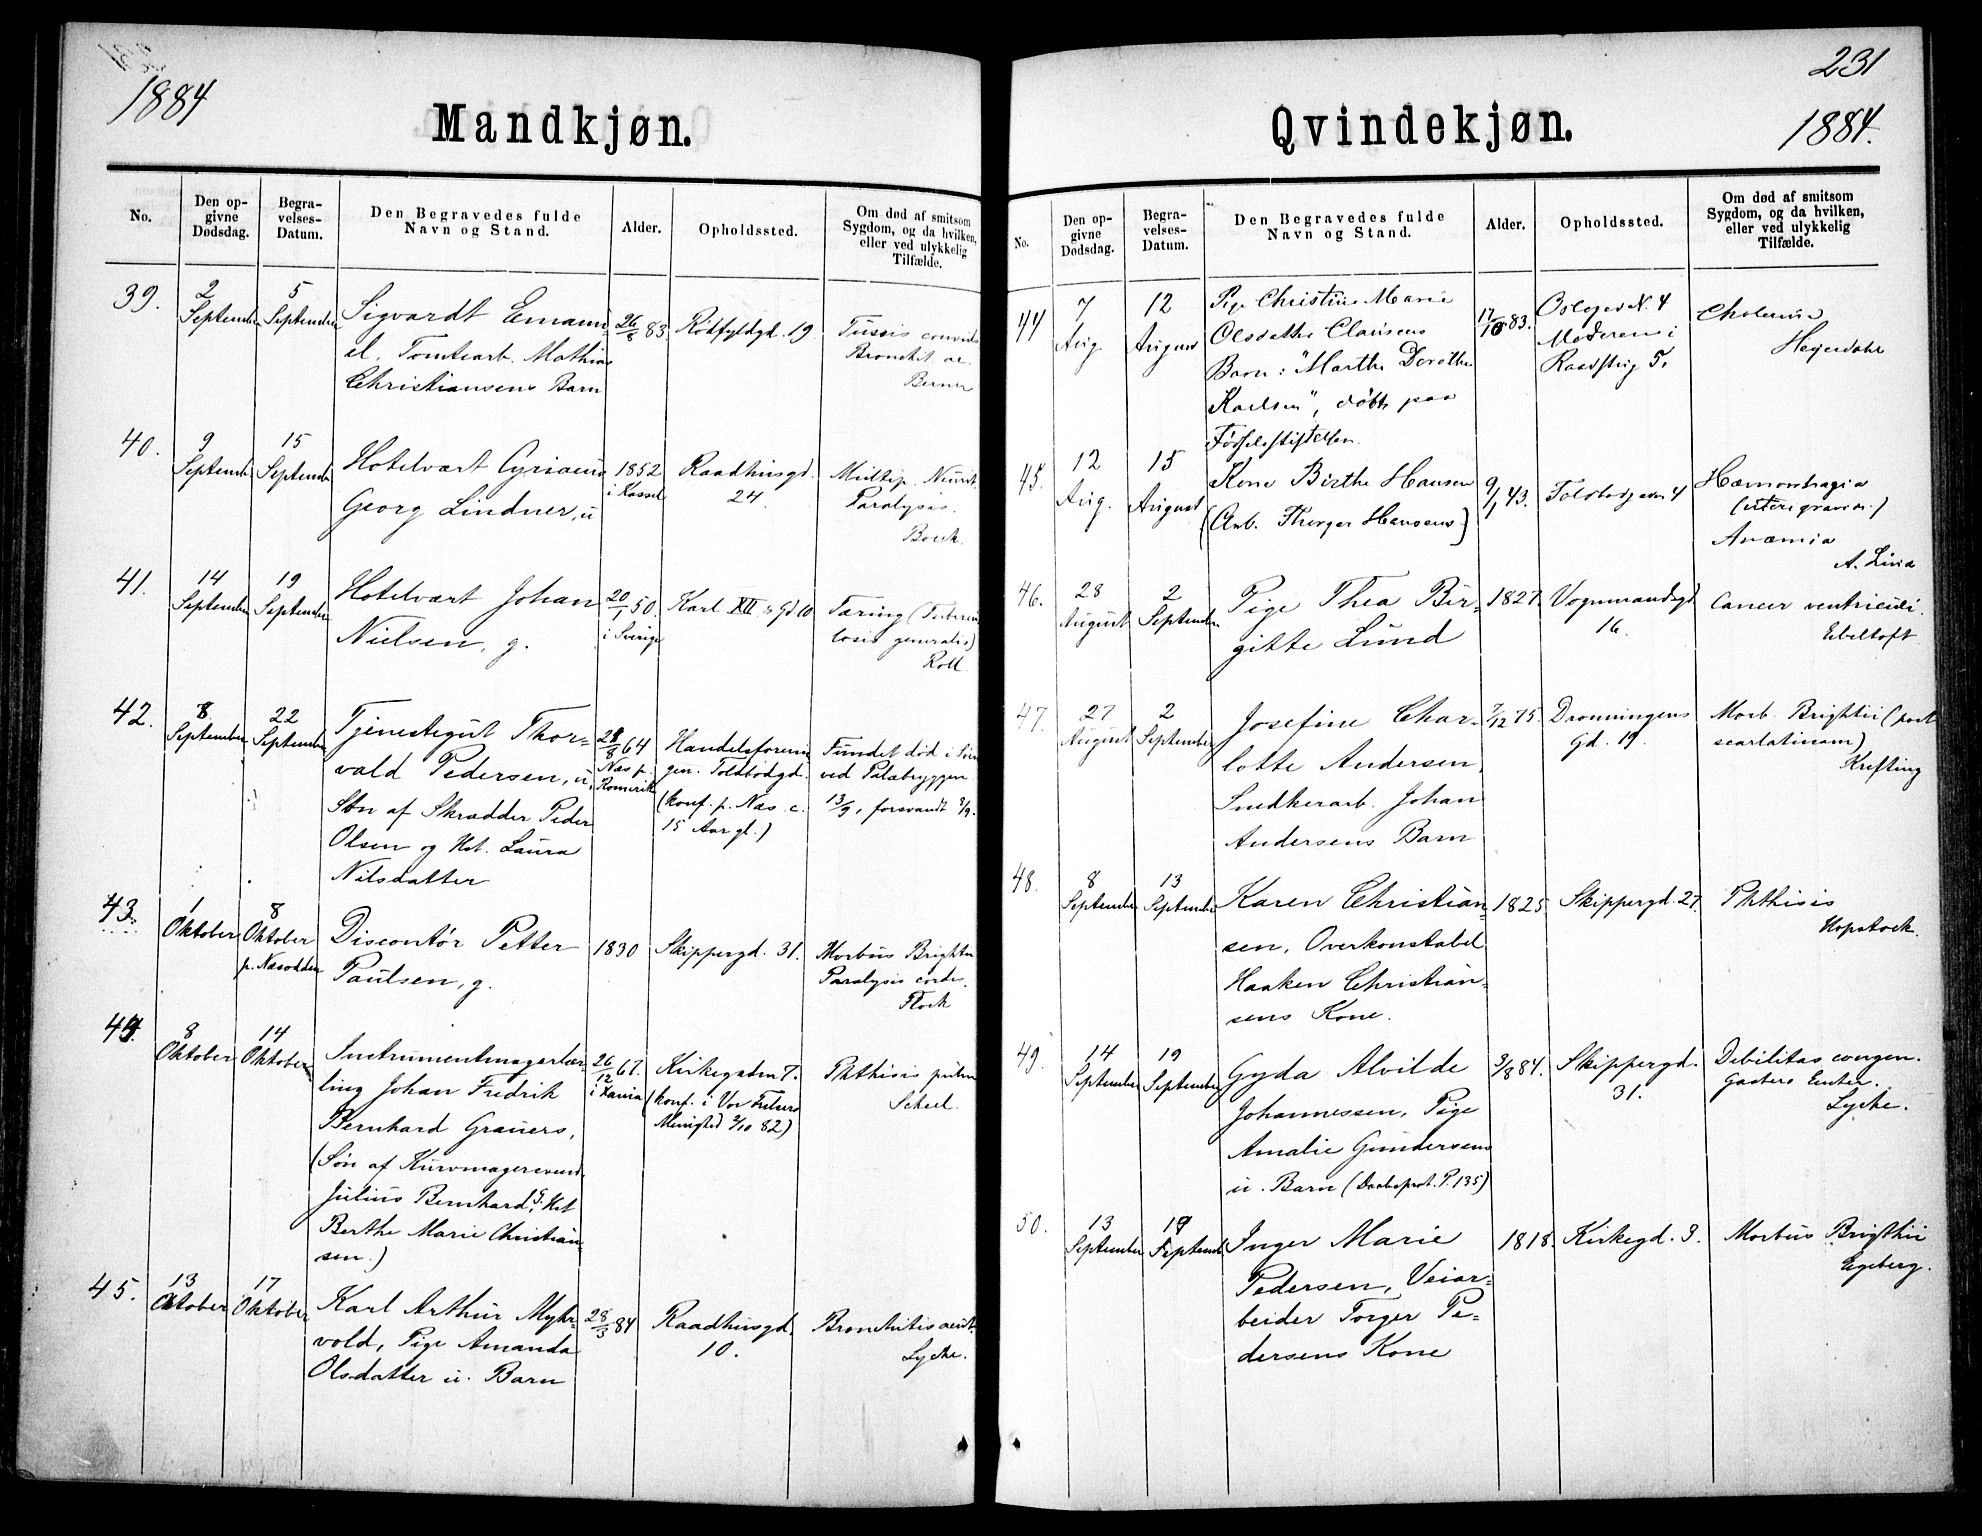 1884
Mandkjøn.
No.
Den op-
givne
Dødsdag.
Begra-
velses-
Datum.
Den Begravedes fulde
Navn og Stand.
Alder.
Opholdssted.
Om død af smitsom
Sygdom, og da hvilken,
eller ved ulykkelig
Tilfælde.
39.
2
September
5
September
Sigvardt Emanu
el, Tomtearb. Mathias
Christiansens Barn
26/8 83
Rødfyldgd. 19
Tussis convuls
Bronchit. ac.
Berner
40.
9
September
15
September
Hotelvært Cyriacus
Georg Lindner, u
1852
i Kassel
Raadhusgd.
24.
Multip. Neurit
Paralysis.
Boeck.
41.
14
September
19
September
Hotelvært Johan
Nielsen, g.
20/1 50.
i Sverige
Karl XII s Gd. 10
Tæring (Tubercu
losis generalis)
Roll
42.
8
September
22
September
Tjenestegut Thor-
vald Pedersen, u.
Søn af Skrædder Peder
Olsen og Hst. Laura
Nilsdatter
28/8 64
Næs p.
Romerik
Handelsforenin
gen. Toldbodgd.
(konf. p. Næs c.
15 Aar gl.)
Fundet død i Søen
ved Palæbryggen
13/9, forsvandt 8/9.
43.
1
Oktober
8
Oktober
p. Næsodden
Discontør Petter
Paulsen, g.
1830
Skippergd. 31.
Morbus Brightii
Paralysis cordis.
Flock
44.
8
Oktober
14
Oktober
Instrumentmagerlær
ling Johan Fredrik
Bernhard Grauers,
(Søn af Kurvmagersvend
Julius Bernhard G. Hst
Berthe Marie Christian-
sen.)
26/12 67.
i Xania
Kirkegaden 7.
(konf. i Vor Frelsers
Menighed 2/10 82)
Phthisis pulm
Scheel.
45.
13
Oktober
17
Oktober
Karl Arthur Myhr-
vold, Pige Amanda
Olsdatter u. Barn
28/3 84
Raadhusgd.
10.
Bronchitis acut.
Lyche.
231
1884.
Qvindekjøn.
No.
Den op-
givne
Dødsdag.
Begra-
velses-
Datum.
Den Begravedes fulde
Navn og Stand.
Alder.
Opholdssted.
Om død af smitsom
Sygdom, og da hvilken,
eller ved ulykkelig
Tilfælde.
44
7
Aug.
12
August
Pige Christine Marie
Olsdatter Clausens
Barn: "Marthe Dorothe
Karlsen", døbt paa
Fødselsstiftelsen.
17/10 83.
Oslogd N. 4
Moderen i
Raadstug 5.
Cholerine
Heyerdahl
45.
12
Aug.
15
August
Kone Birthe Hansen
(Arb. Thorger Hansens)
9/1 43.
Toldbodgaden 4
Hæmorrhagia
(uteri gravid.)
Anæmia
46.
28
August
2
September
Pige Thea Bir-
gitte Lund
1827.
Vognmandsgd
16.
Cancer ventriculi.
Ebeltoft.
47.
27
August
2
September
Josefine Char-
lotte Andersen,
Snedkerarb. Johan
Andersens Barn
7/12 75.
Dronningens
Gd. 19.
Morb. Brightii (post
scarlatinam)
Krefting
48.
8
September
13
September
Karen Christian-
sen, Overkonstabel
Haaken Christian-
sens Kone.
1825.
Skippergd. 27.
Phthisis
Hopstock.
49.
14
September
19
September
Gyda Alvilde
Johannessen, Pige
Amalie Gundersens
u. Barn (Daabsprot. P. 135)
3/8 84.
Skippergd.
31.
Debilitas congen.
Gastero Enter.
Lyche.
50.
13
September
19
September
Inger Marie
Pedersen, Veiar-
beider Torger Pe-
dersens Kone
1818.
Kirkegd. 3.
Morbus Brigthii
Egeberg.